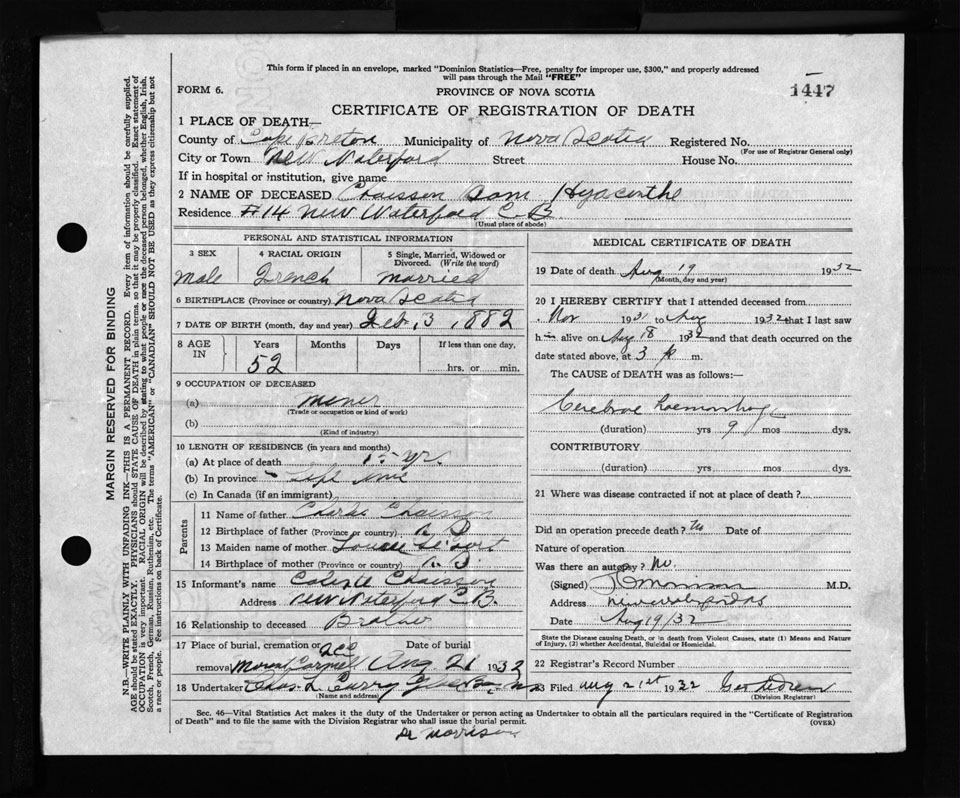 This form if placed in an envelope, marked "Dominion Statistics—Free, penalty for improper use, $300," and properly addressed
will pass through the Mail "FREE"
FORM 6.
PROVINCE OF NOVA SCOTIA
1447
CERTIFICATE OF REGISTRATION OF DEATH
1 PLACE OF DEATH—
County of Cape Breton Municipality of Nova Scotia Registered No.
(For use of Registrar General only)
City or Town New Waterford Street House No.
If in hospital or institution, give name
2 NAME OF DECEASED Chaisson Dom Hyacinthe
Residence #14 New Waterford C.B.
(Usual place of abode)
PERSONAL AND STATISTICAL INFORMATION
3 SEX 4 RACIAL ORIGIN 5 Single, Married, Widowed or Divorced. (Write the word)
Male French married
6 BIRTHPLACE (Province or country) Nova Scotia
7 DATE OF BIRTH (month, day and year) Feb. 3, 1882
8 AGE IN Years Months Days If less than one day,
52 hrs. or min.
9 OCCUPATION OF DECEASED
(a) miner
(Trade or occupation or kind of work)
(b)
(Kind of industry)
10 LENGTH OF RESIDENCE (in years and months)
(a) At place of death yr.
(b) In province Life time
(c) In Canada (if an immigrant)
Parents
11 Name of father Charlie Chaisson
12 Birthplace of father (Province or country)
13 Maiden name of mother
14 Birthplace of mother (Province or country)
15 Informant's name Chaisson
Address New Waterford C.B.
16 Relationship to deceased Brother
17 Place of burial, cremation or Date of burial
removal Mount Carmel Aug 21 1932
18 Undertaker Chas. L. Curry
(Name and address)
MEDICAL CERTIFICATE OF DEATH
19 Date of death Aug 19 1932
(Month, day and year)
20 I HEREBY CERTIFY that I attended deceased from
Nov 1931 to Aug 1932 that I last saw
h alive on Aug 18 1932 and that death occurred on the
date stated above, at 3 p m.
The CAUSE of DEATH was as follows:—
Cerebral haemorrhage
(duration) yrs 9 mos dys.
CONTRIBUTORY
(duration) yrs mos dys.
21 Where was disease contracted if not at place of death?
Did an operation precede death? No Date of
Nature of operation
Was there an autopsy? No.
(Signed) Morrison M.D.
Address New Waterford
Date Aug 19/32
State the Disease causing Death, or in death from Violent Causes, state (1) Means and Nature
of Injury, (2) whether Accidental, Suicidal or Homicidal.
22 Registrar's Record Number
23 Filed Aug 21st 1932
(Division Registrar)
Sec. 46—Vital Statistics Act makes it the duty of the Undertaker or person acting as Undertaker to obtain all the particulars required in the "Certificate of Registration
of Death" and to file the same with the Division Registrar who shall issue the burial permit.
(OVER)
Dr Morrison
MARGIN RESERVED FOR BINDING
N.B.—WRITE PLAINLY WITH UNFADING INK—THIS IS A PERMANENT RECORD. Every item of information should be carefully supplied.
AGE should be stated EXACTLY. PHYSICIANS should STATE CAUSE OF DEATH in plain terms, so that it may be properly classified. Exact statement of
OCCUPATION is very important. RACIAL ORIGIN will be described by stating to what people or race the deceased person belonged, whether English, Irish,
Scotch, French, German, Russian, Ruthenian, etc. The terms "AMERICAN" or "CANADIAN" SHOULD NOT BE USED as they express citizenship but not
a race or people. See instructions on back of Certificate.